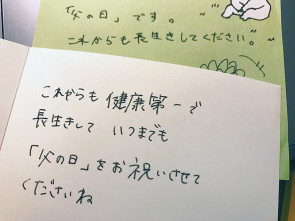 「父の日」です。
これからも長生きしてください。
これからも健康第一で
長生きして いつまでも
「父の日」をお祝いさせて
くださいね